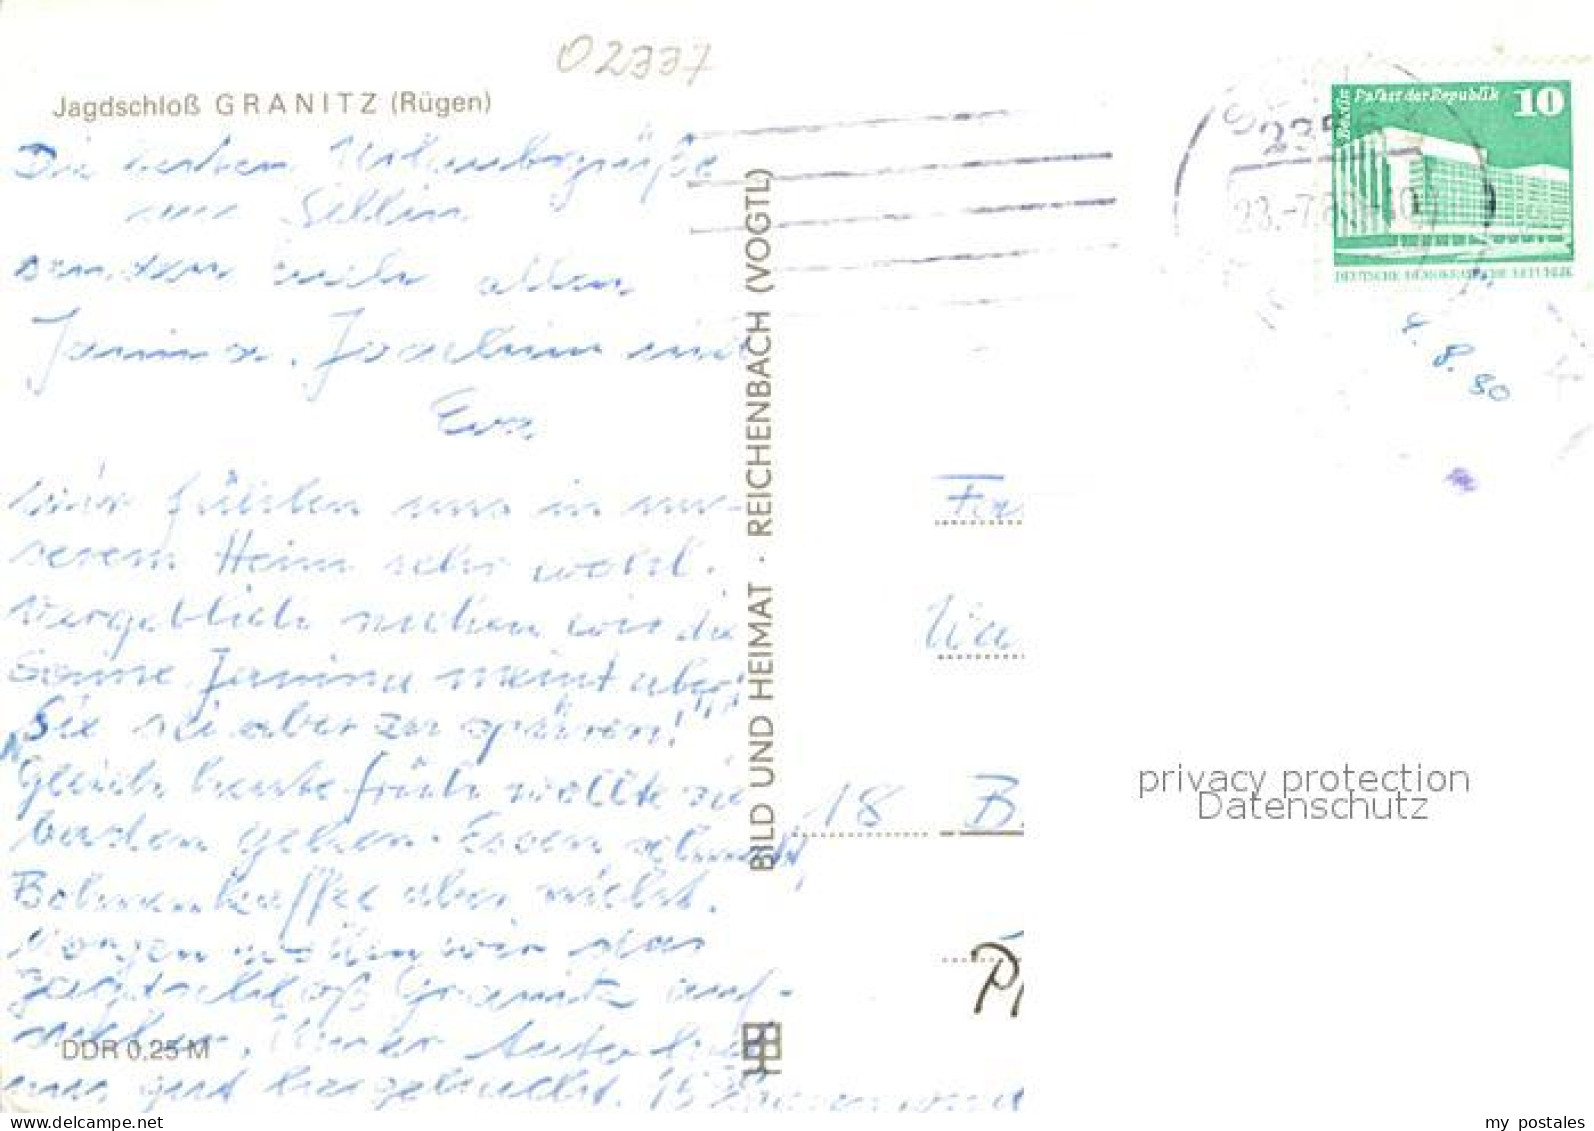 02337
Jagdschloß GRANITZ (Rügen)
Die besten Urlaubsgrüße
aus Sellin
senden euch allen
Janina, Joachim und
Eva
Wir fühlen uns in un-
serem Heim sehr wohl.
Vergeblich suchen wir die
Sonne Janina meint aber:
"Sie sei aber zu spüren!"
Gleich heute früh wollte sie
baden gehen. Essen schmeckt,
Bohnenkaffee aber nicht.
Morgen wollen wir das
Jagdschloß Granitz auf-
suchen. Unser Auto hat
uns gut hergebracht. 15
DDR 0,25 M
BILD UND HEIMAT · REICHENBACH (VOGTL)
Berlin Palast der Republik 10
DEUTSCHE DEMOKRATISCHE REPUBLIK
28.-7.80
4. 8. 80
Fa
18 B
privacy protection
Datenschutz
www.delcampe.net
my_postales